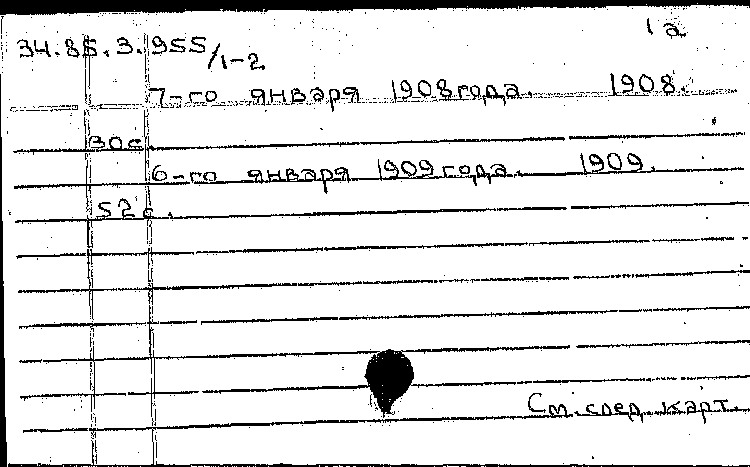 1 а
34.85.3.955/1-2
7-го января 1908 года. 1908.
30с.
6-го января 1909 года. 1909.
52с.
См. след. карт.